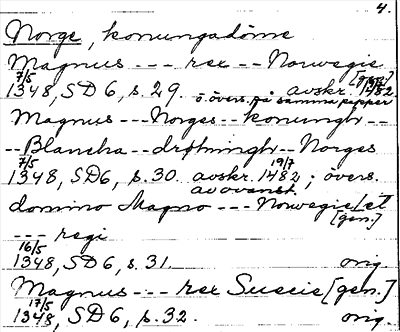 4.
Norge, konungadöme
Magnus --- rex -- Norwegie
7/5 [gen.]
1348, SD 6, s. 29. avskr. 1482
o. övers. på samma papper
Magnus --- Norges -- konungh --
-- Blancha -- drotningh -- Norges
7/5 19/7
1348, SD 6, s. 30. avskr. 1482; övers.
av ovanst.
domino Magno --- Norwegie [et
[gen.]
--- regi
16/5
1348, SD 6, s. 31. orig.
Magnus --- rex Suecie [gen.]
17/5
1348, SD 6, s. 32. orig.